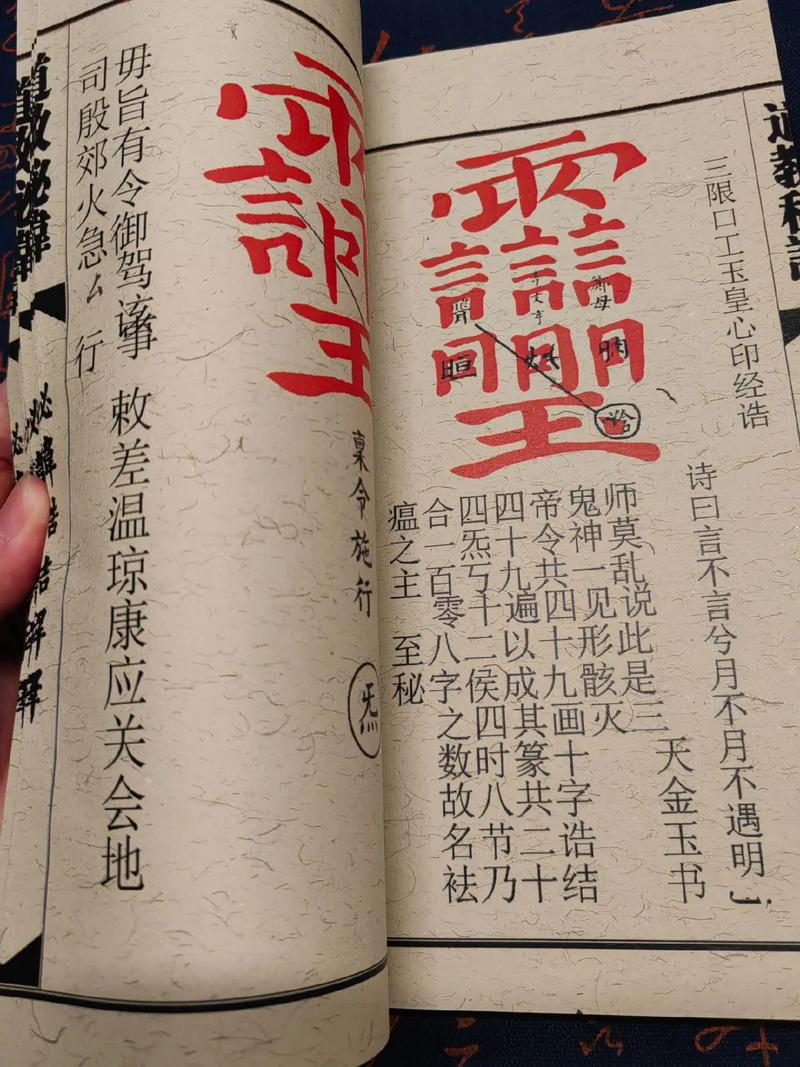 道教秘
三限口工玉皇心印经诰
诗曰言不言兮月不月不遇明
师莫乱说此是三
天金玉书
鬼神一见形骸灭
帝令共四十九画十字诰结
四十九遍以成其篆共二十
四炁丂十二侯四时八节乃
合一百零八字之数故名祛
瘟之主 至秘
稟令施行 炁
敕差温琼康应关会地
毋旨有令御驾该事
司殷郊火急厶 行